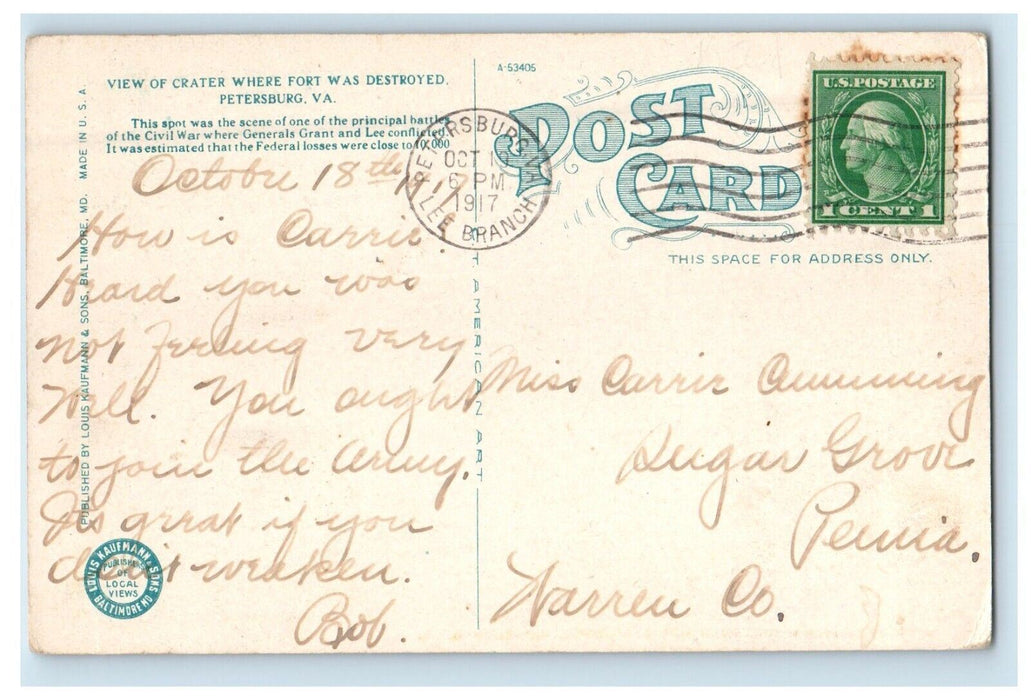 VIEW OF CRATER WHERE FORT WAS DESTROYED.
PETERSBURG, VA.
This spot was the scene of one of the principal battles
of the Civil War where Generals Grant and Lee conflicted.
It was estimated that the Federal losses were close to 000
October 18th 1917
How is Carrie.
Heard you was
not feeling very
Well. You aught
to join the Army.
Its great if you
don't weaken.
Bob.
PUBLISHED BY LOUIS KAUFMANN & SONS, BALTIMORE, MD. MADE IN U.S.A.
LOUIS KAUFMANN & SONS
PUBLISHERS
OF
LOCAL
VIEWS
BALTIMORE MD
AMERICAN ART
A-53405
POST
CARD
PETERSBURG, VA.
OCT
6 PM
1917
LEE BRANCH
U.S. POSTAGE
1 CENT 1
THIS SPACE FOR ADDRESS ONLY.
Miss Carrie Cumming
Sugar Grove
Penna.
Warren Co.